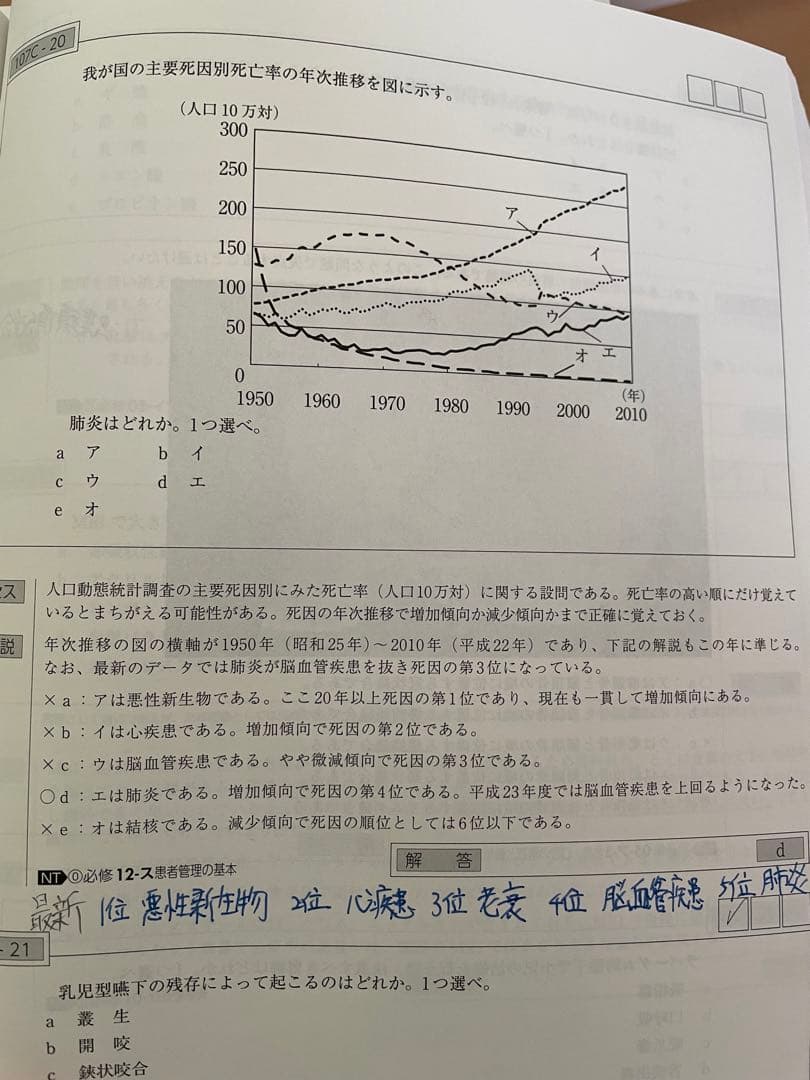 107C-20
我が国の主要死因別死亡率の年次推移を図に示す。
(人口10万対)
300
250
200
150
100
50
0
ア
イ
ウ
エ
オ
(年)
1950 1960 1970 1980 1990 2000 2010
肺炎はどれか。1つ選べ。
a ア b イ
c ウ d エ
e オ
人口動態統計調査の主要死因別にみた死亡率(人口10万対)に関する設問である。死亡率の高い順にだけ覚えて
いるとまちがえる可能性がある。死因の年次推移で増加傾向か減少傾向かまで正確に覚えておく。
説 年次推移の図の横軸が1950年(昭和25年)~2010年(平成22年)であり、下記の解説もこの年に準じる。
なお、最新のデータでは肺炎が脳血管疾患を抜き死因の第3位になっている。
×a:アは悪性新生物である。ここ20年以上死因の第1位であり、現在も一貫して増加傾向にある。
×b:イは心疾患である。増加傾向で死因の第2位である。
×c:ウは脳血管疾患である。やや微減傾向で死因の第3位である。
○d:エは肺炎である。増加傾向で死因の第4位である。平成23年度では脳血管疾患を上回るようになった。
×e:オは結核である。減少傾向で死因の順位としては6位以下である。
解 答 d
NT ⓪必修 12-ス患者管理の基本
最新 1位 悪性新生物 2位 心疾患 3位 老衰 4位 脳血管疾患 5位 肺炎
-21
乳児型嚥下の残存によって起こるのはどれか。1つ選べ。
a 叢 生
b 開 咬
c 鋏状咬合